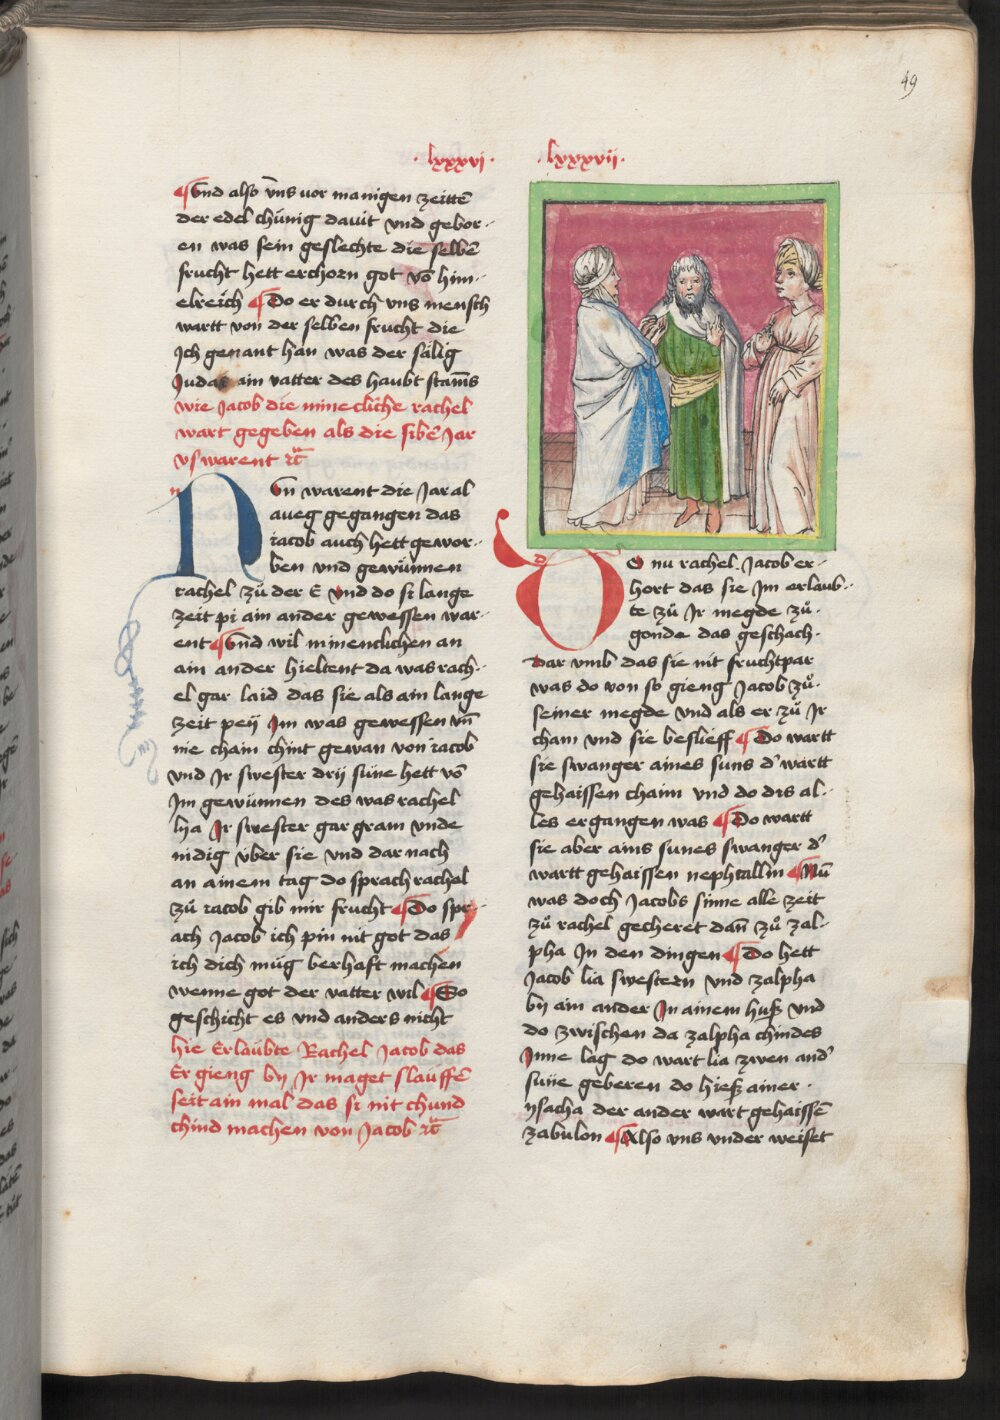 49
· lxxxvi ·
· lxxxvii ·
¶ Vnd also v̄ns vor manigen zeittē
der edel chünig dauit vnd gebor-
en was sein geslechte die selbē
frucht hett erchorn got vō him-
elreich ¶ Do er durch vns mensch
wartt von der selben frucht die
Ich genant han was der sälig
Judas ain vatter des haubt stam̄s
wie Jacob die minecliche rachel
wart gegeben als die sibē Jar
vs warent
n
Nvn warent die Jar al
aueg gegangen das
iacob auch hett gewor-
ben vnd gewünnen
rachel zů der E vnd do si lange
zeit pi ain ander gewessen war-
ent ¶ Vnd wil minenclichen an
ain ander hieltent da was rach-
el gar laid das sie als ain lange
zeit peÿ Im was gewessen vn̄
nie chain chint gewan von iacob
vnd Jr swester drij süne hett vō
Jm gewünnen des was rachel
lya Jr swester gar gram vnde
nidig über sie vnd dar nach
an ainem tag do sprach rachel
zů iacob gib mir frucht ¶ Do spr-
ach Jacob ich pin nit got das
ich dich müg berhaft machen
wenne got der vatter wil ¶ So
geschicht es vnd anders nicht
hie Erlaubte Rachel Jacob das
Er gieng by Jr maget slauffē
seit ain mal das si nit chund
chind machen von Jacob
d
DO nu rachel. Jacob er-
hort das sie Jm erlaub-
te zů Jr megde zů-
gonde das geschach-
dar vmb das sie nit fruchtpar
was do von so gieng Jacob zů-
seiner megde vnd als er zů Jr
cham vnd sie beslieff ¶ Do wartt
sie swanger aines suns d' wartt
gehaissen chaim vnd do dis al-
les ergangen was ¶ Do wartt
sie aber ains sunes swanger d'
wartt gehaissen nephtallim ¶ Nū
was doch Jacobs sinne alle zeit
zů rachel gecheret dan̄ zů zal-
pha Jn den dingen ¶ Do hett
Jacob lia swestern vnd zalpha
by ain ander Jn ainem huß vnd
do zwischen da zalpha chindes
Jnne lag do wart lia zwen and'
süne geberen do hieß ainer ·
ysacha der ander wart gehaissē
zabulon ¶ Also vns vnder weiset